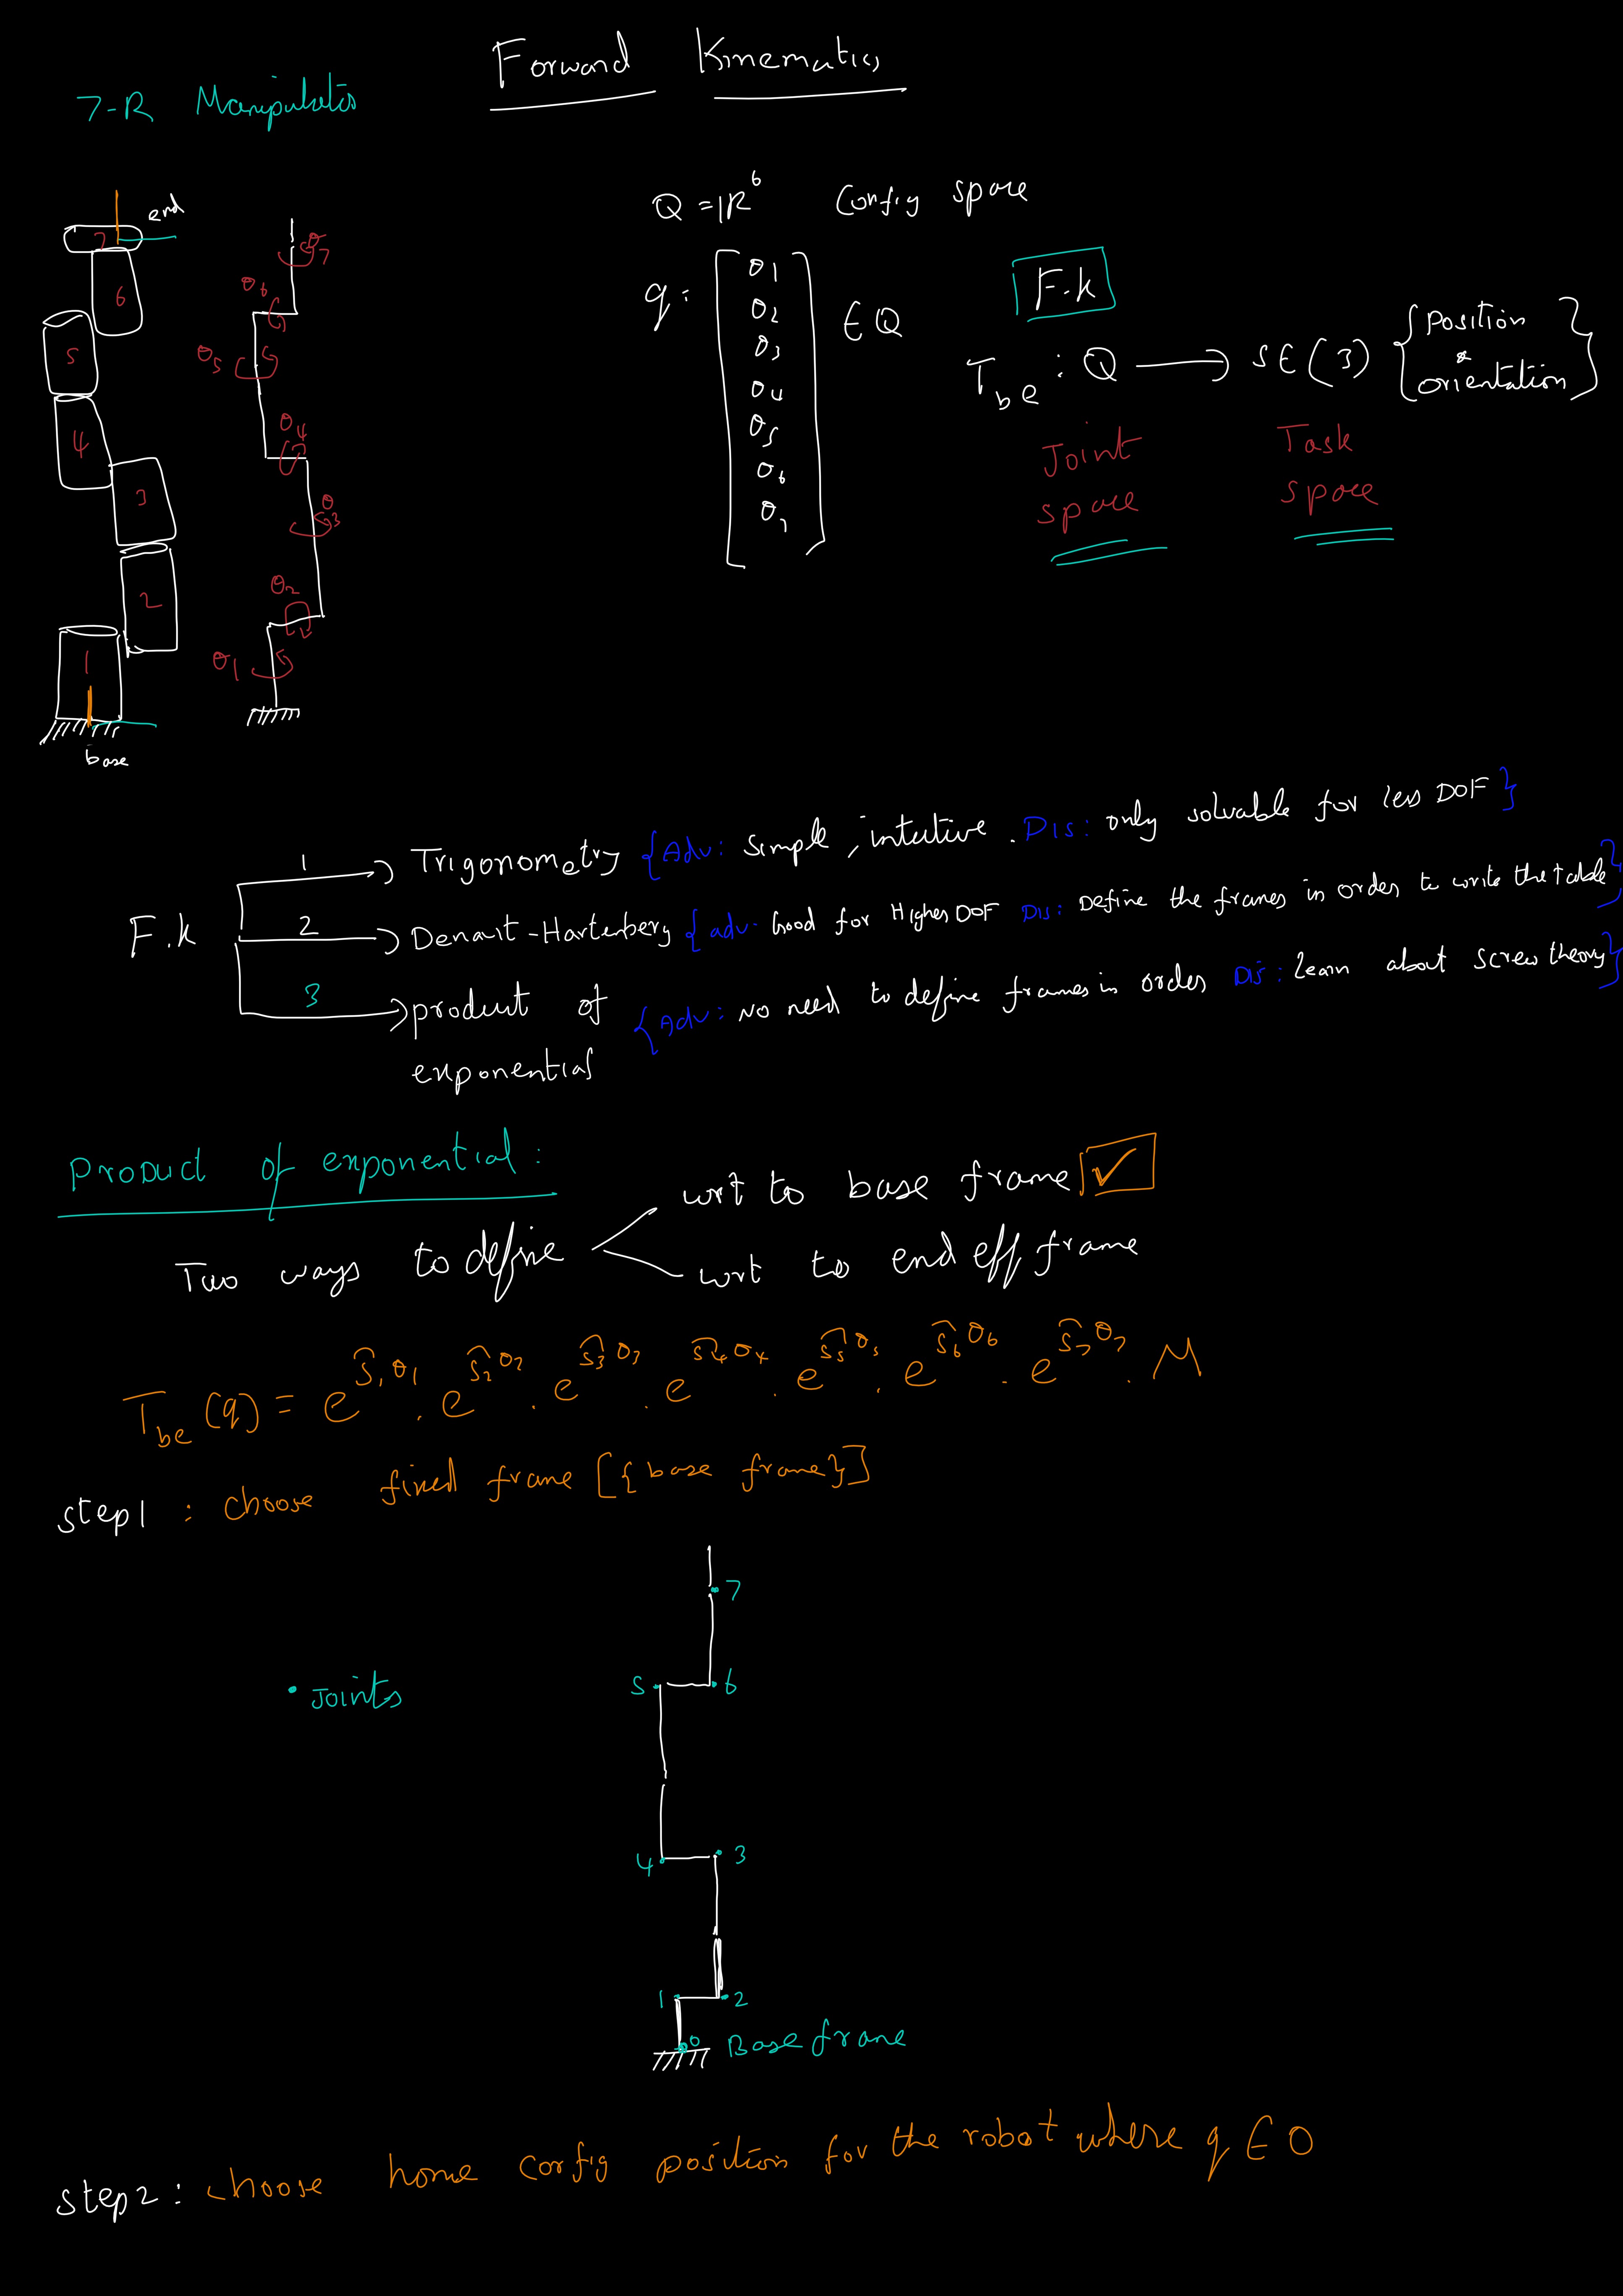 Forward Kinematics
7-R Manipulator
end
7
6
5
4
3
2
1
base
θ7
θ6
θ5
θ4
θ3
θ2
θ1
Q = ℝ^6 Config space
q = [θ1 θ2 θ3 θ4 θ5 θ6 θ7] ∈ Q
F.k
T_be : Q → SE(3) {position & orientation}
Joint space
Task space
F.k
1 → Trigonometry {Adv: Simple, intutive. Dis: only solvable for less DOF}
2 → Denavit-Hartenberg {adv: Good for Higher DOF Dis: Define the frames in order to write the table}
3 → product of exponential {Adv: No need to define frames in order Dis: learn about screw theory}
Product of exponential:
Two ways to define
wrt to base frame ✓
wrt to end eff frame
T_be(q) = e^{ŝ1θ1} . e^{ŝ2θ2} . e^{ŝ3θ3} . e^{ŝ4θ4} . e^{ŝ5θ5} . e^{ŝ6θ6} . e^{ŝ7θ7} . M
step1 : choose fixed frame [{base frame}]
7
• Joints
5 6
4 3
1 2
0 Base frame
step2 : choose home config position for the robot where q ∈ 0